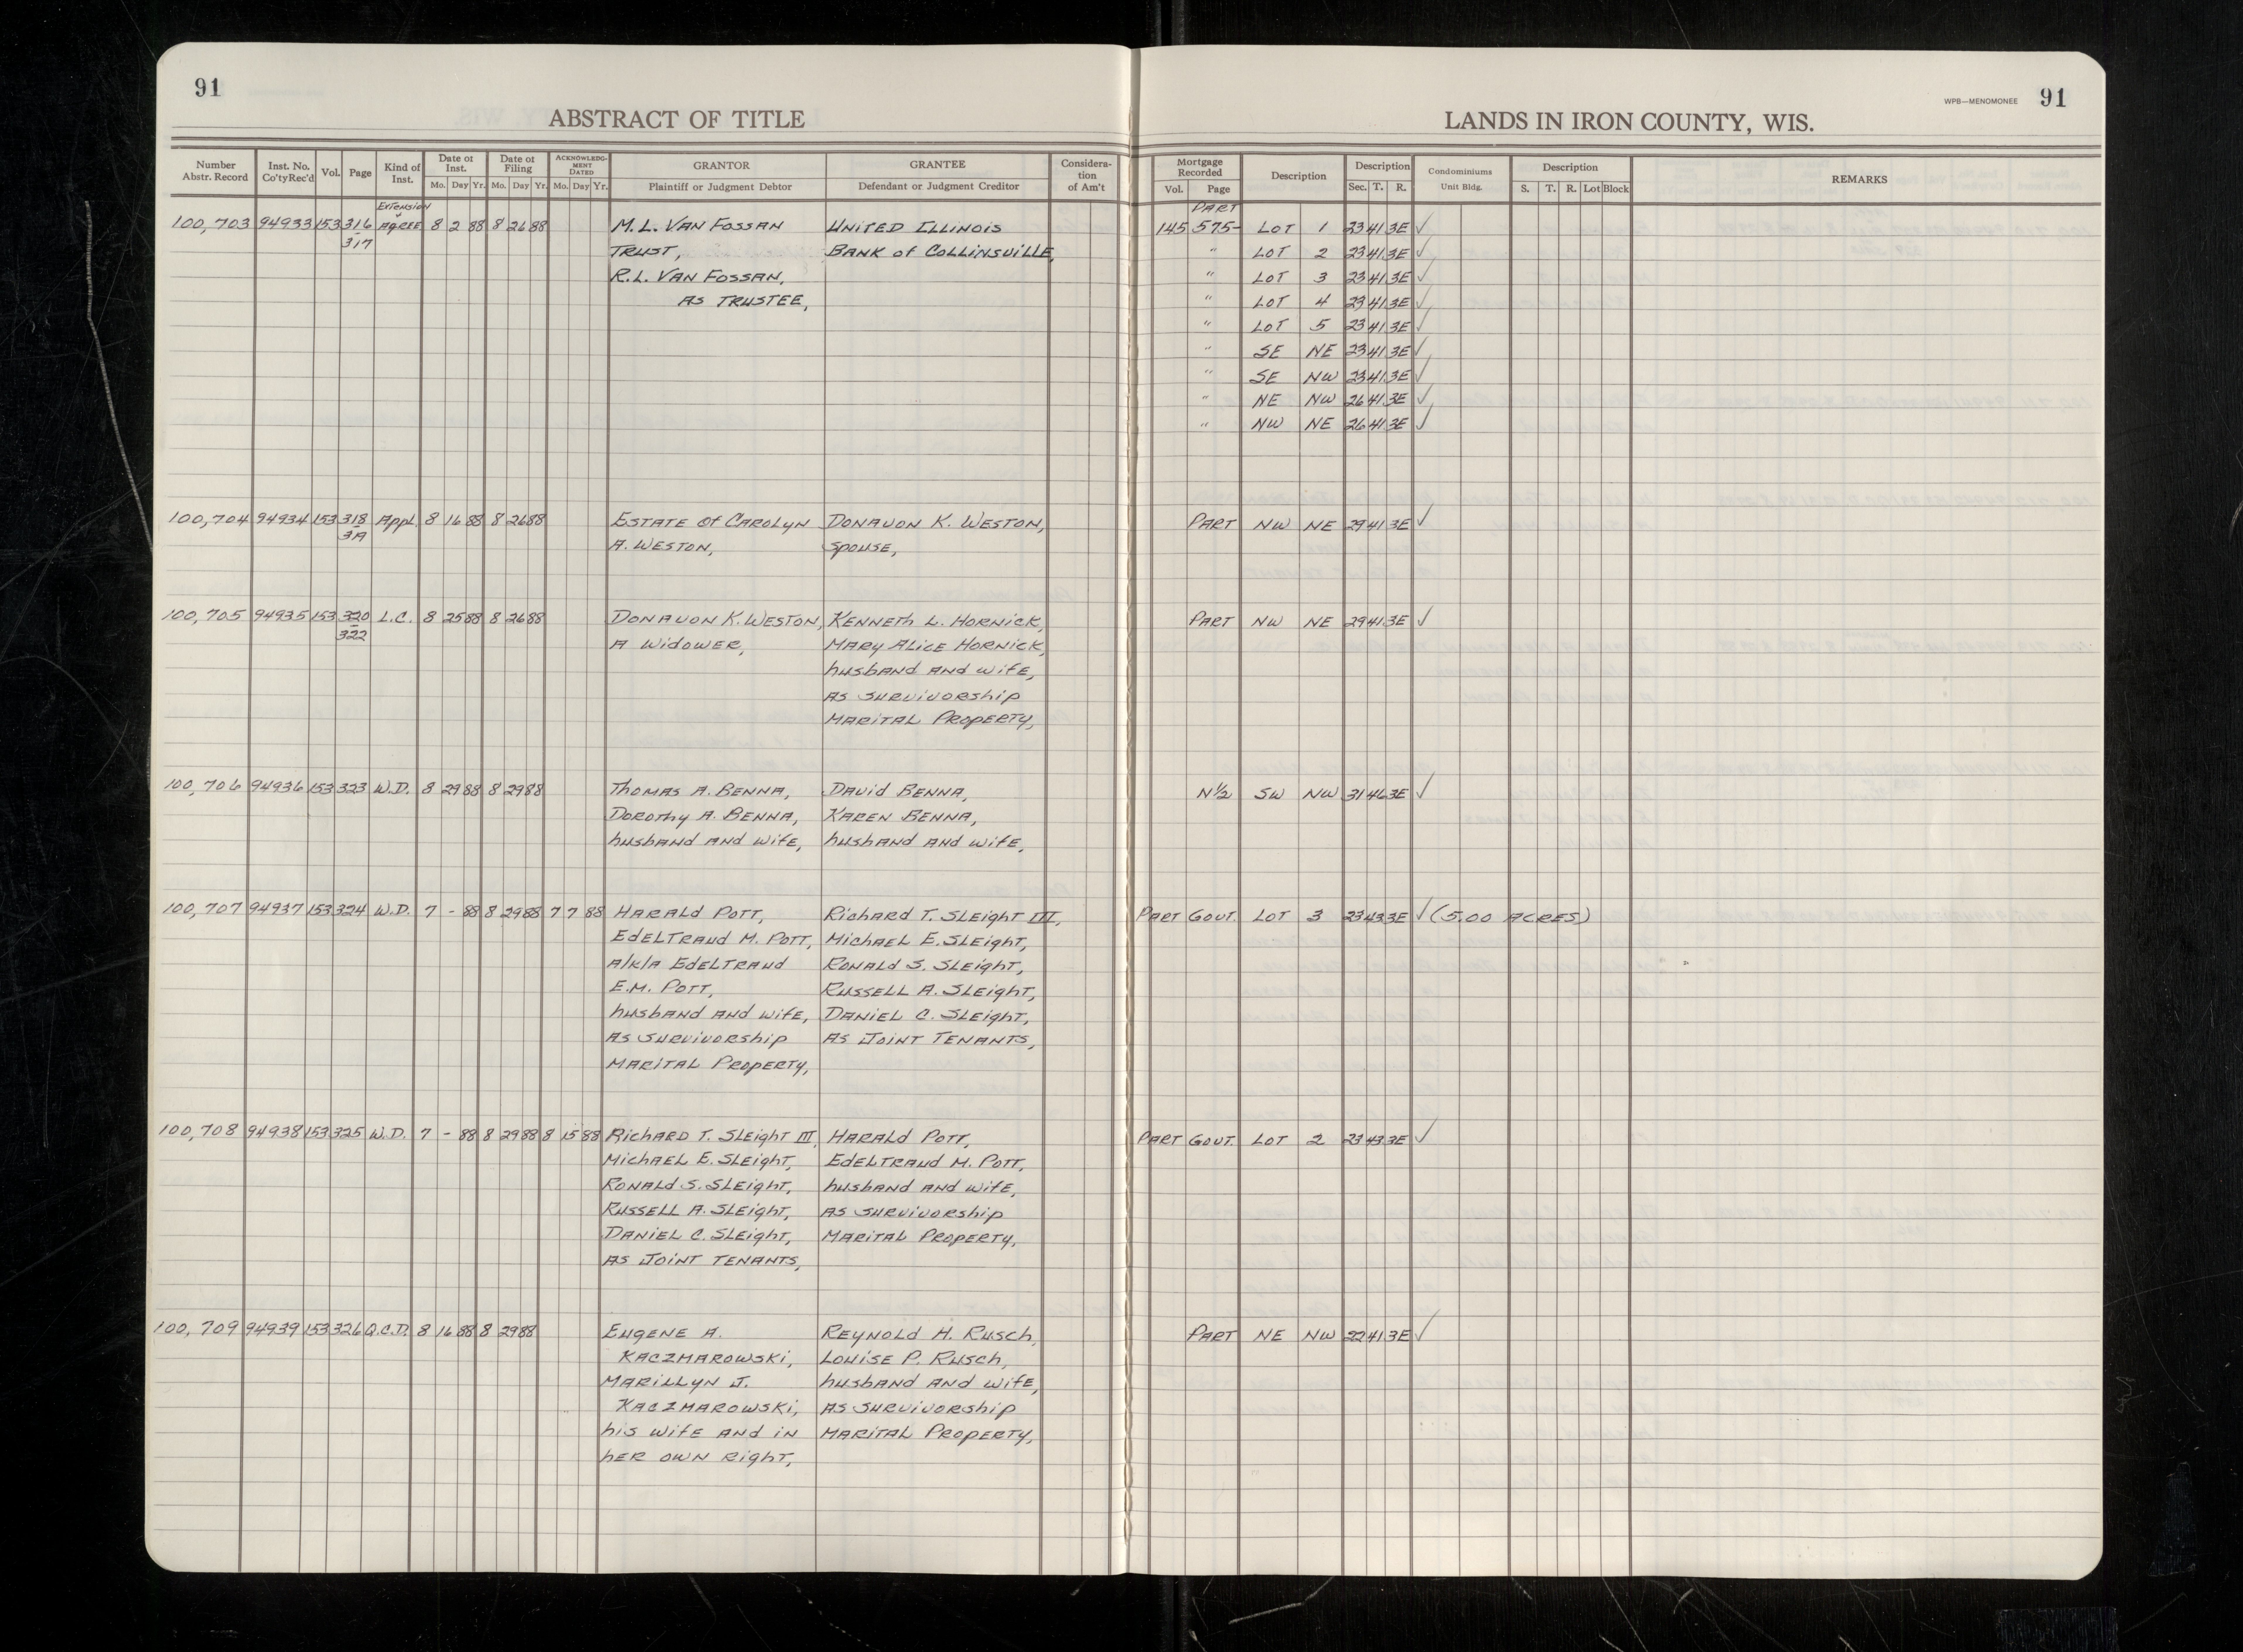 91
ABSTRACT OF TITLE
WPB—MENOMONEE 91
LANDS IN IRON COUNTY, WIS.
Number Abstr. Record Inst. No. Co'ty Rec'd Vol. Page Kind of Inst. Date of Inst. Mo. Day Yr. Date of Filing Mo. Day Yr. ACKNOWLEDGMENT DATED Mo. Day Yr. GRANTOR Plaintiff or Judgment Debtor GRANTEE Defendant or Judgment Creditor Consideration of Am't Mortgage Recorded Vol. Page Description Description Sec. T. R. Condominiums Unit Bldg. Description S. T. R. Lot Block REMARKS
Extension PART
100,703 94933 153 316 Agree 8 2 88 8 26 88 M.L. Van Fossan United Illinois 145 575- Lot 1 23 41 3E ✓
317 Trust, Bank of Collinsville, " Lot 2 23 41 3E ✓
R.L. Van Fossan, " Lot 3 23 41 3E ✓
As Trustee, " Lot 4 23 41 3E ✓
" Lot 5 23 41 3E ✓
" SE NE 23 41 3E ✓
" SE NW 23 41 3E ✓
" NE NW 26 41 3E ✓
" NW NE 26 41 3E ✓
100,704 94934 153 318 Appl. 8 16 88 8 26 88 Estate of Carolyn Donavon K. Weston, Part NW NE 29 41 3E ✓
319 A. Weston, spouse,
100,705 94935 153 320 L.C. 8 25 88 8 26 88 Donavon K. Weston, Kenneth L. Hornick, Part NW NE 29 41 3E ✓
322 A widower, Mary Alice Hornick,
husband and wife,
As survivorship
Marital Property,
100,706 94936 153 323 W.D. 8 29 88 8 29 88 Thomas A. Benna, David Benna, N½ SW NW 31 46 3E ✓
Dorothy A. Benna, Karen Benna,
husband and wife, husband and wife,
100,707 94937 153 324 W.D. 7 - 88 8 29 88 7 7 88 Harald Pott, Richard T. Sleight III, Part Gov't. Lot 3 23 43 3E ✓ (5.00 Acres)
Edeltraud M. Pott, Michael E. Sleight,
A/K/A Edeltraud Ronald S. Sleight,
E.M. Pott, Russell A. Sleight,
husband and wife, Daniel C. Sleight,
As survivorship As Joint Tenants,
Marital Property,
100,708 94938 153 325 W.D. 7 - 88 8 29 88 8 15 88 Richard T. Sleight III, Harald Pott, Part Gov't. Lot 2 23 43 3E ✓
Michael E. Sleight, Edeltraud M. Pott,
Ronald S. Sleight, husband and wife,
Russell A. Sleight, As survivorship
Daniel C. Sleight, Marital Property,
As Joint Tenants,
100,709 94939 153 326 Q.C.D. 8 16 88 8 29 88 Eugene A. Reynold H. Rusch, Part NE NW 22 41 3E ✓
Kaczmarowski, Louise P. Rusch,
Marillyn J. husband and wife,
Kaczmarowski, As survivorship
his wife and in Marital Property,
her own right,